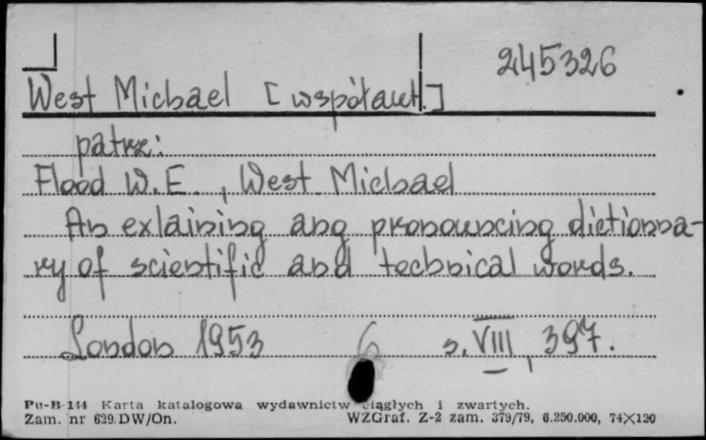 245326
West Michael [współaut.]
patrz:
Flood W.E., West Michael
An exlaining ang pronouncing dictionna-
ry of scientific and technical words.
London 1953 6 s. VIII, 397.
Pu-B-144 Karta katalogowa wydawnictw ciągłych i zwartych.
Zam. nr 629 DW/On. WZGraf. Z-2 zam. 379/79, 6.250.000, 74×120